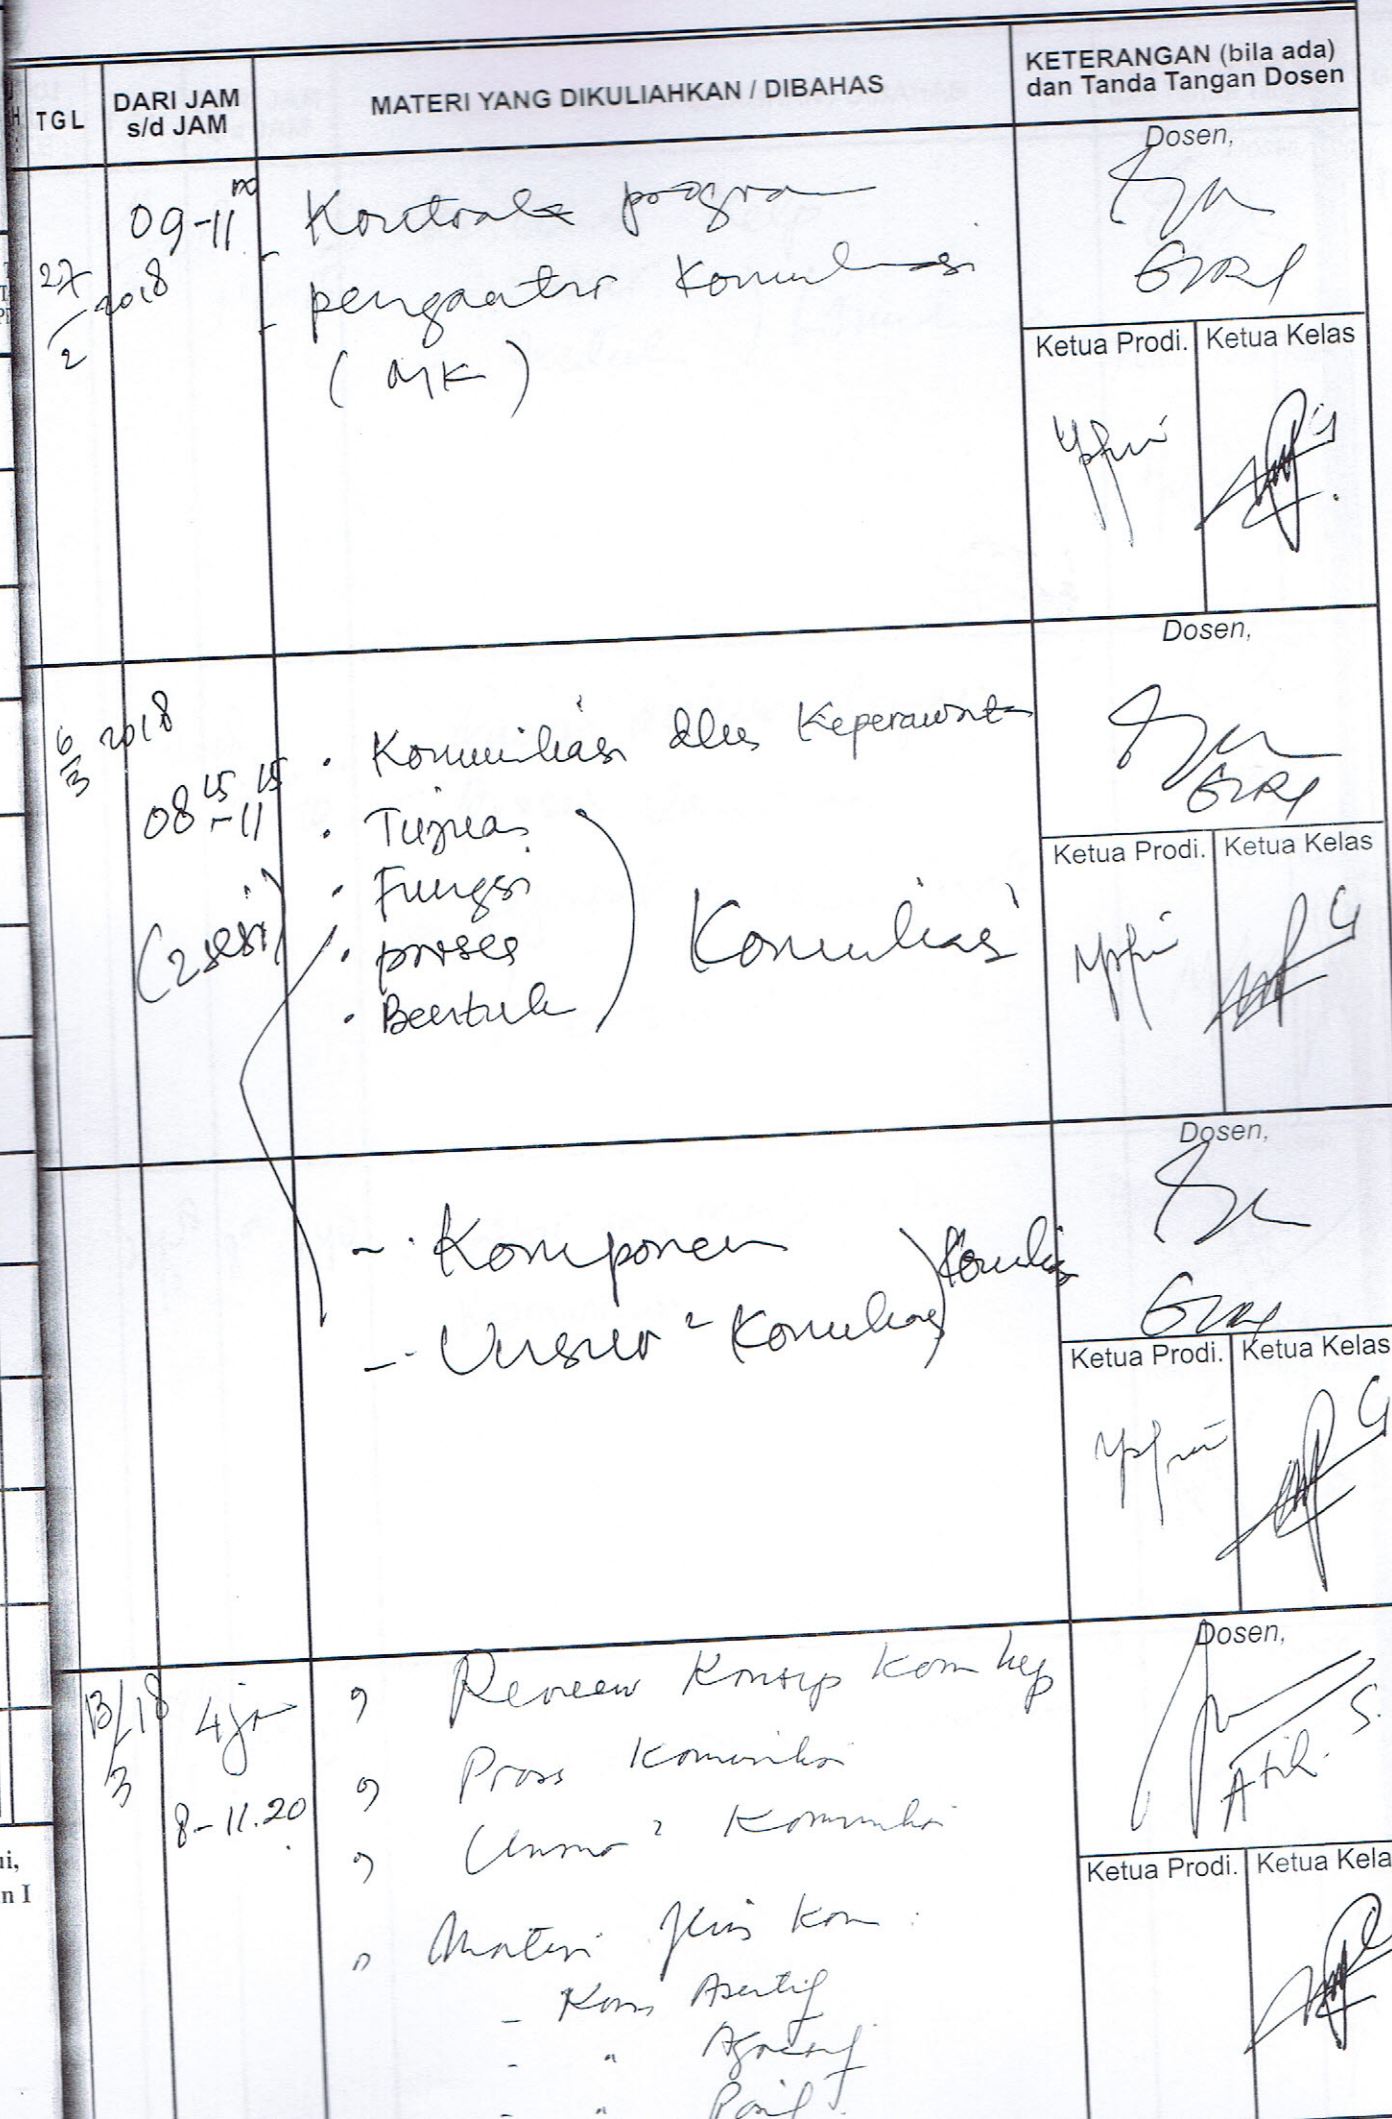 TGL
DARI JAM
s/d JAM
MATERI YANG DIKULIAHKAN / DIBAHAS
KETERANGAN (bila ada)
dan Tanda Tangan Dosen
27/2 2018
09-11 00
- Kontrak program
- pengantar Komunikasi
(MK)
Dosen,
Ketua Prodi.
Ketua Kelas
6/3 2018
08 15 - 11 15
(2 sesi)
• Komunikasi dlm Keperawatan
• Tujuan
• Fungsi
• proses
• Bentuk
Komunikasi
Dosen,
Ketua Prodi.
Ketua Kelas
- Komponen
- Unsur 2 Komunikasi
Komunikasi
Dosen,
Ketua Prodi.
Ketua Kelas
13/3 18
4 jam
8-11.20
Review Konsep Kom kep
Proses Komunikasi
Unsur 2 Komunikasi
Materi Jenis Kom :
- Kom Asertif
- " Agresif
- " Pasif
Dosen,
Atik. S.
Ketua Prodi.
Ketua Kela
ui,
n I